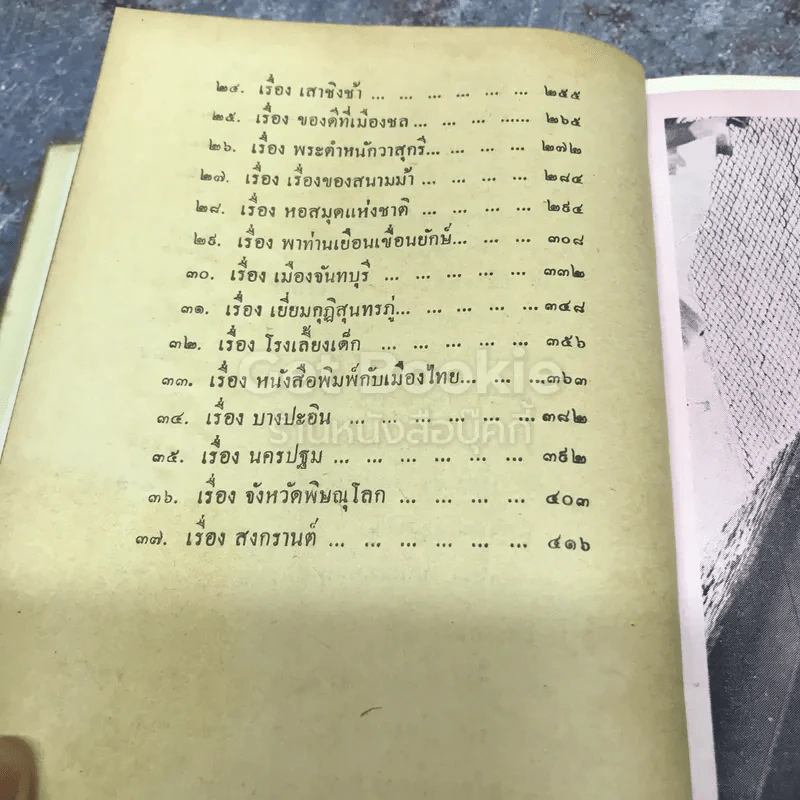 ๒๔. เรื่อง เสาชิงช้า ... ... ... ... ... ... ๒๕๕
๒๕. เรื่อง ของดีที่เมืองชล ... ... ... ...... ๒๖๕
๒๖. เรื่อง พระตำหนักวาสุกรี... ... ... ... ๒๗๒
๒๗. เรื่อง เรื่องของสนามม้า ... ... ... ... ๒๘๔
๒๘. เรื่อง หอสมุดแห่งชาติ ... ... ... ... ๒๙๔
๒๙. เรื่อง พาท่านเยือนเขื่อนยักษ์... ... ... ๓๐๘
๓๐. เรื่อง เมืองจันทบุรี ... ... ... ... ... ๓๓๒
๓๑. เรื่อง เยี่ยมกุฏิสุนทรภู่... ... ... ... ... ๓๔๘
๓๒. เรื่อง โรงเลี้ยงเด็ก ... ... ... ... ... ๓๕๖
๓๓. เรื่อง หนังสือพิมพ์กับเมืองไทย... ... ... ...๓๖๓
๓๔. เรื่อง บางปะอิน ... ... ... ... ... ... ๓๘๒
๓๕. เรื่อง นครปฐม ... ... ... ... ... ... ๓๙๒
๓๖. เรื่อง จังหวัดพิษณุโลก ... ... ... ... ๔๐๓
๓๗. เรื่อง สงกรานต์ ... ... ... ... ... ... ๔๑๖
Get Bookie
ร้านหนังสือบุ๊คกี้